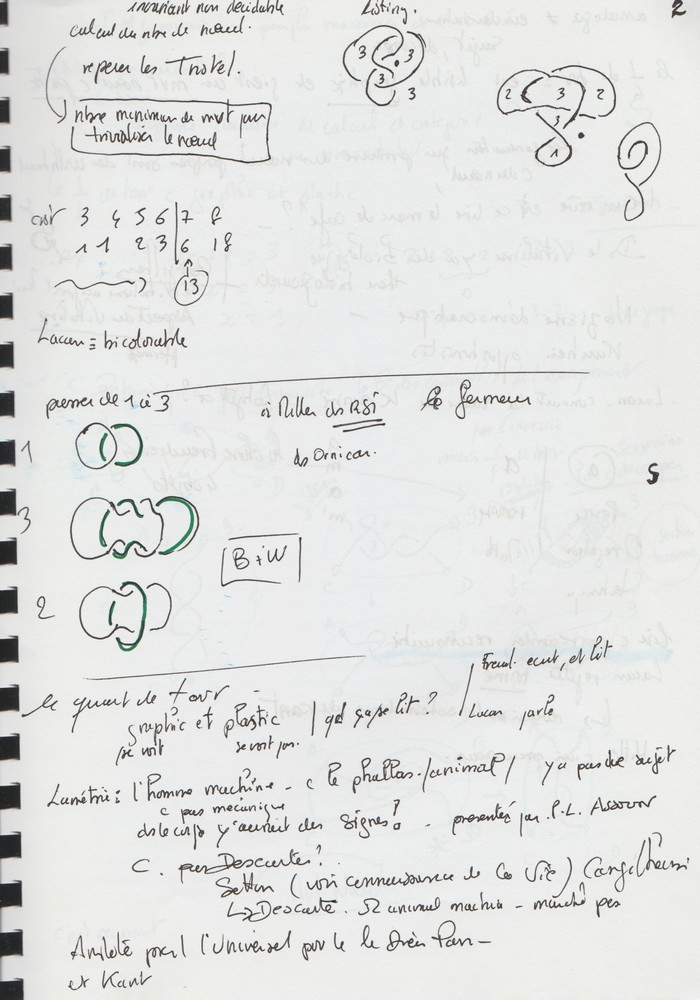 invariant non décidable
Listing.
2
calcul du nbre de nœud.
reperer les Trivel.
nbre minimum de mvt pour
trivialiser le nœud
3 3 3 3
2 3 2
3
1
3 4 5 6 7 8
1 1 2 3 6 18
13
Lacan = bicolorable
passer de 1 à 3
à Miller ds RSI
ds Ornicar.
1
5
3
B + W
2
le quart de tour -
graphic et plastic
se voit se voit pas.
qd ça se lit ?
Freud. ecrit, et lit
Lacan parle
Lamétrie : l'homme machine - c le phallus /animal/ y a pas de sujet
c pas mécanique
ds le corps y'aurait des signes ? - presentés par P.L. Assoun
C. pas Descartes ?
(voir connaissance de la vie) Canguilhem
Descarte. animal machine - marche pas
Aristote l'Universel
et Kant